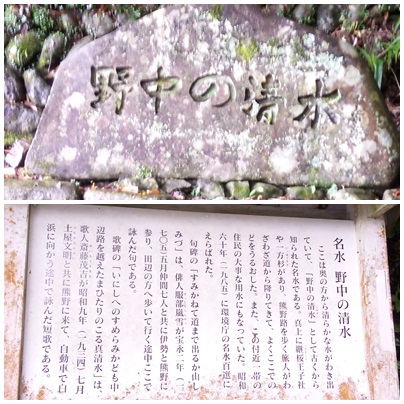 野中の清水
名水 野中の清水
ここは奥の方から清らかな水がわき出
ていて、「野中の清水」として古くから
知られた名水である。真上に継桜王子社
や一方杉があり、熊野路を歩く旅人がわ
ざわざ道から降りてきて、よくここでの
どをうるおした。また、この付近一帯の
住民の大事な用水にもなっていた。昭和
六十年(一九八五)に環境庁の名水百選に
えらばれた。
句碑の「すみかねて道まで出るか山し
みづ」は、俳人服部嵐雪が宝永二年(一
七〇五)五月仲間七人と共に伊勢と熊野に
参り、田辺の方へ歩いて行く途中ここで
詠んだ句である。
歌碑の「いにしへのすめらみかども中
辺路を越えたまひたりのこる真清水」は、
歌人斎藤茂吉が昭和九年(一九三四)七月
土屋文明と共に熊野に来て、自動車で白
浜に向かう途中で詠んだ短歌である。